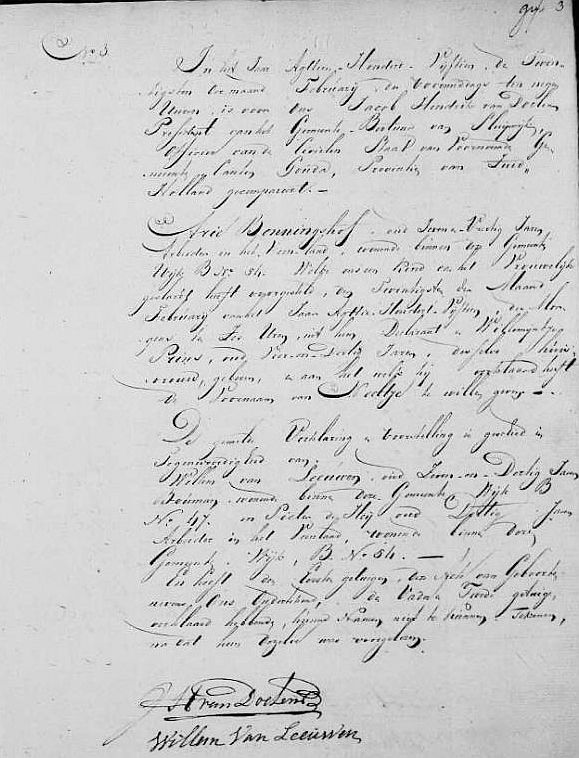 3
No 3
In het Jaar Agttien-Hondert-Vyftien, de Twin-
tigsten der maand February, des voormiddags ten negen
Uuren, is voor Ons Jacob Hendrik van Doelen
President van het Gemeente-Bestuur van Sluipwyk,
Officier van de Civielen Staat van Voornoemde Ge-
meente, Canton Gouda, Provintie van Zuid
Holland gecompareert. —
Arie Benningshof, oud Jaren
Arbeider in het Veen-land, wonende binnen deze Gemeente
Wyk B No 54. Welke ons een Kind van het Vrouwelyke
geslacht heeft voorgesteld, den Twintigsten der Maand
February van het Jaar Agttien-Hondert-Vyftien, des Mor-
gens te Uren, uit hem Declarant en Willempje
Prins, oud Vier-en-Dertig Jaren, deszelfs huis-
vrouw, geboren, en aan het welke hy verklaard heeft
de Voornaam van Neeltje te willen geven —.
De gemelde Verklaring en voorstelling is geschied in
Tegenwoordigheid van
Willem van Leeuwen, oud en-Dertig Jaren
Bouwman, wonende binnen deze Gemeente Wyk B
No 47. en Pieter de Hey oud Jaren
Arbeider in het Veenland, wonende binnen deze
Gemeente, Wyk, B. No 54. —
En heeft de Eerste getuigen, deze Acte van Geboorte
nevens Ons Onderteekend, de Vader en Twede getuige,
verklaard hebbende, hunne Namen niet te kunnen Tekenen,
na dat hun dezelve was voorgelezen.
J H van Doelen
Willem Van Leeuwen